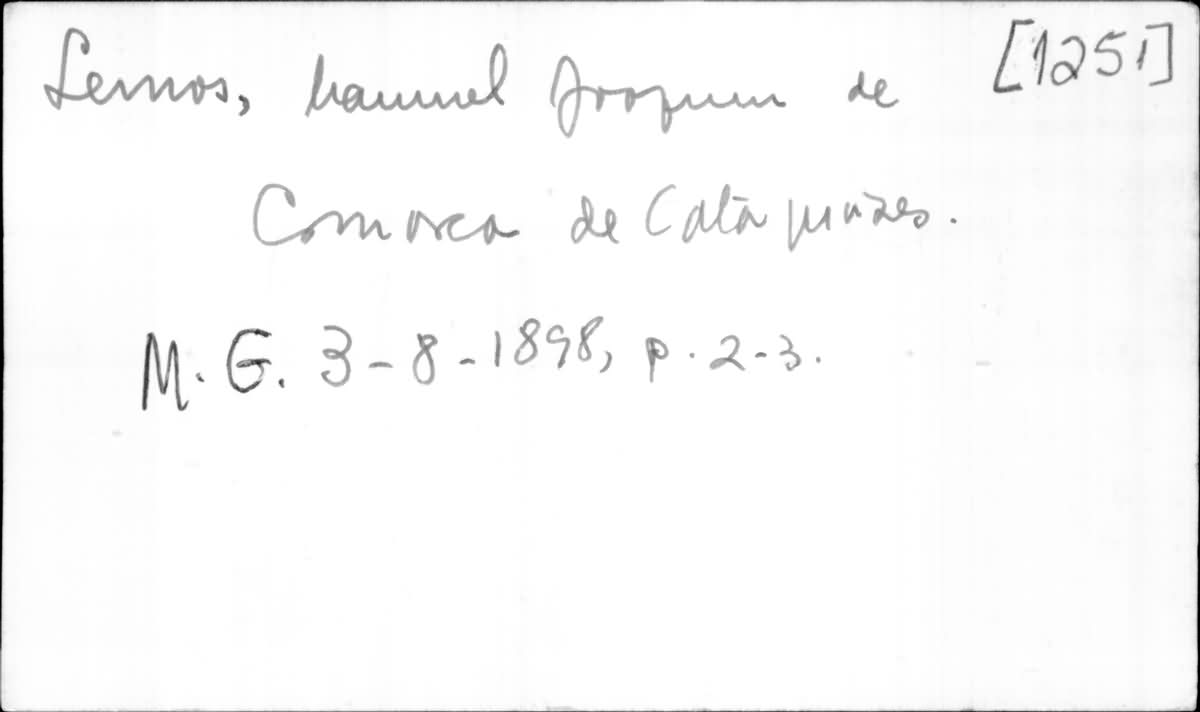 Lemos, Manuel Joaquim de [1251]
Comarca de Cataguazes.
M. G. 3-8-1898, p. 2-3.